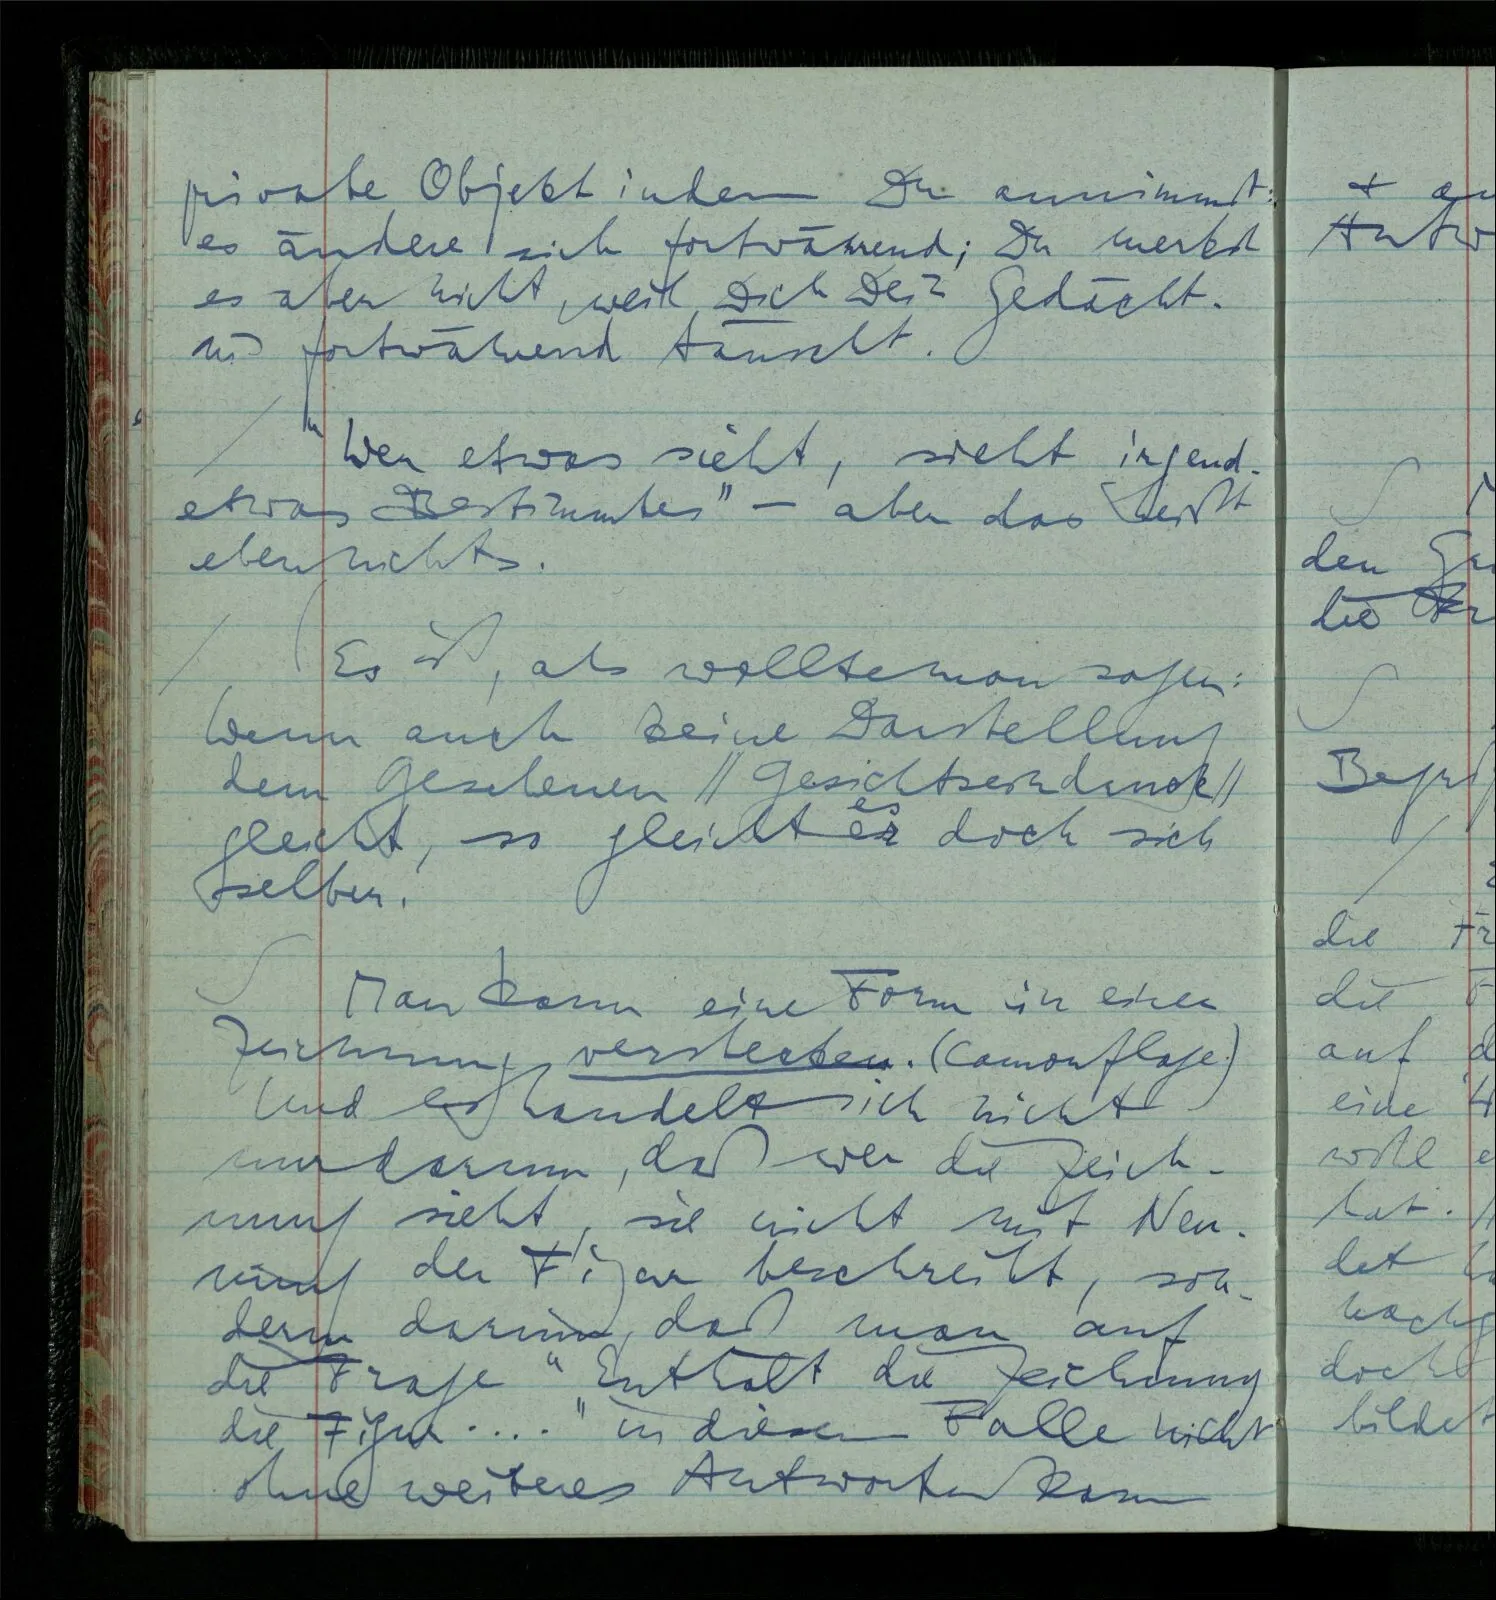 private Objekt indem Du annimmst:
es ändere sich fortwährend; Du merkst
es aber nicht, weil Dich Dein Gedächt-
nis fortwährend täuscht.
"Wer etwas sieht, sieht irgend-
etwas Bestimmtes" – aber das heißt
eben nichts.
Es ist, als wollte man sagen:
Wenn auch keine Darstellung
dem Gesehenen // Gesichtseindruck //
gleicht, so gleicht er es doch sich
selber.
Man kann eine Form in einer
Zeichnung verstecken. (Camouflage)
Und es handelt sich nicht
nur darum, daß wer die Zeich-
nung sieht, sie nicht mit Nen-
nung der Figur beschreibt, son-
dern darin, daß man auf
die Frage "Enthält die Zeichnung
die Figur ...." in diesem Falle nicht
ohne weiteres Antworten kann
+ an
Antw
den
die
die
die
auf d
eine
wohl e
hat.
det
doch
bildet